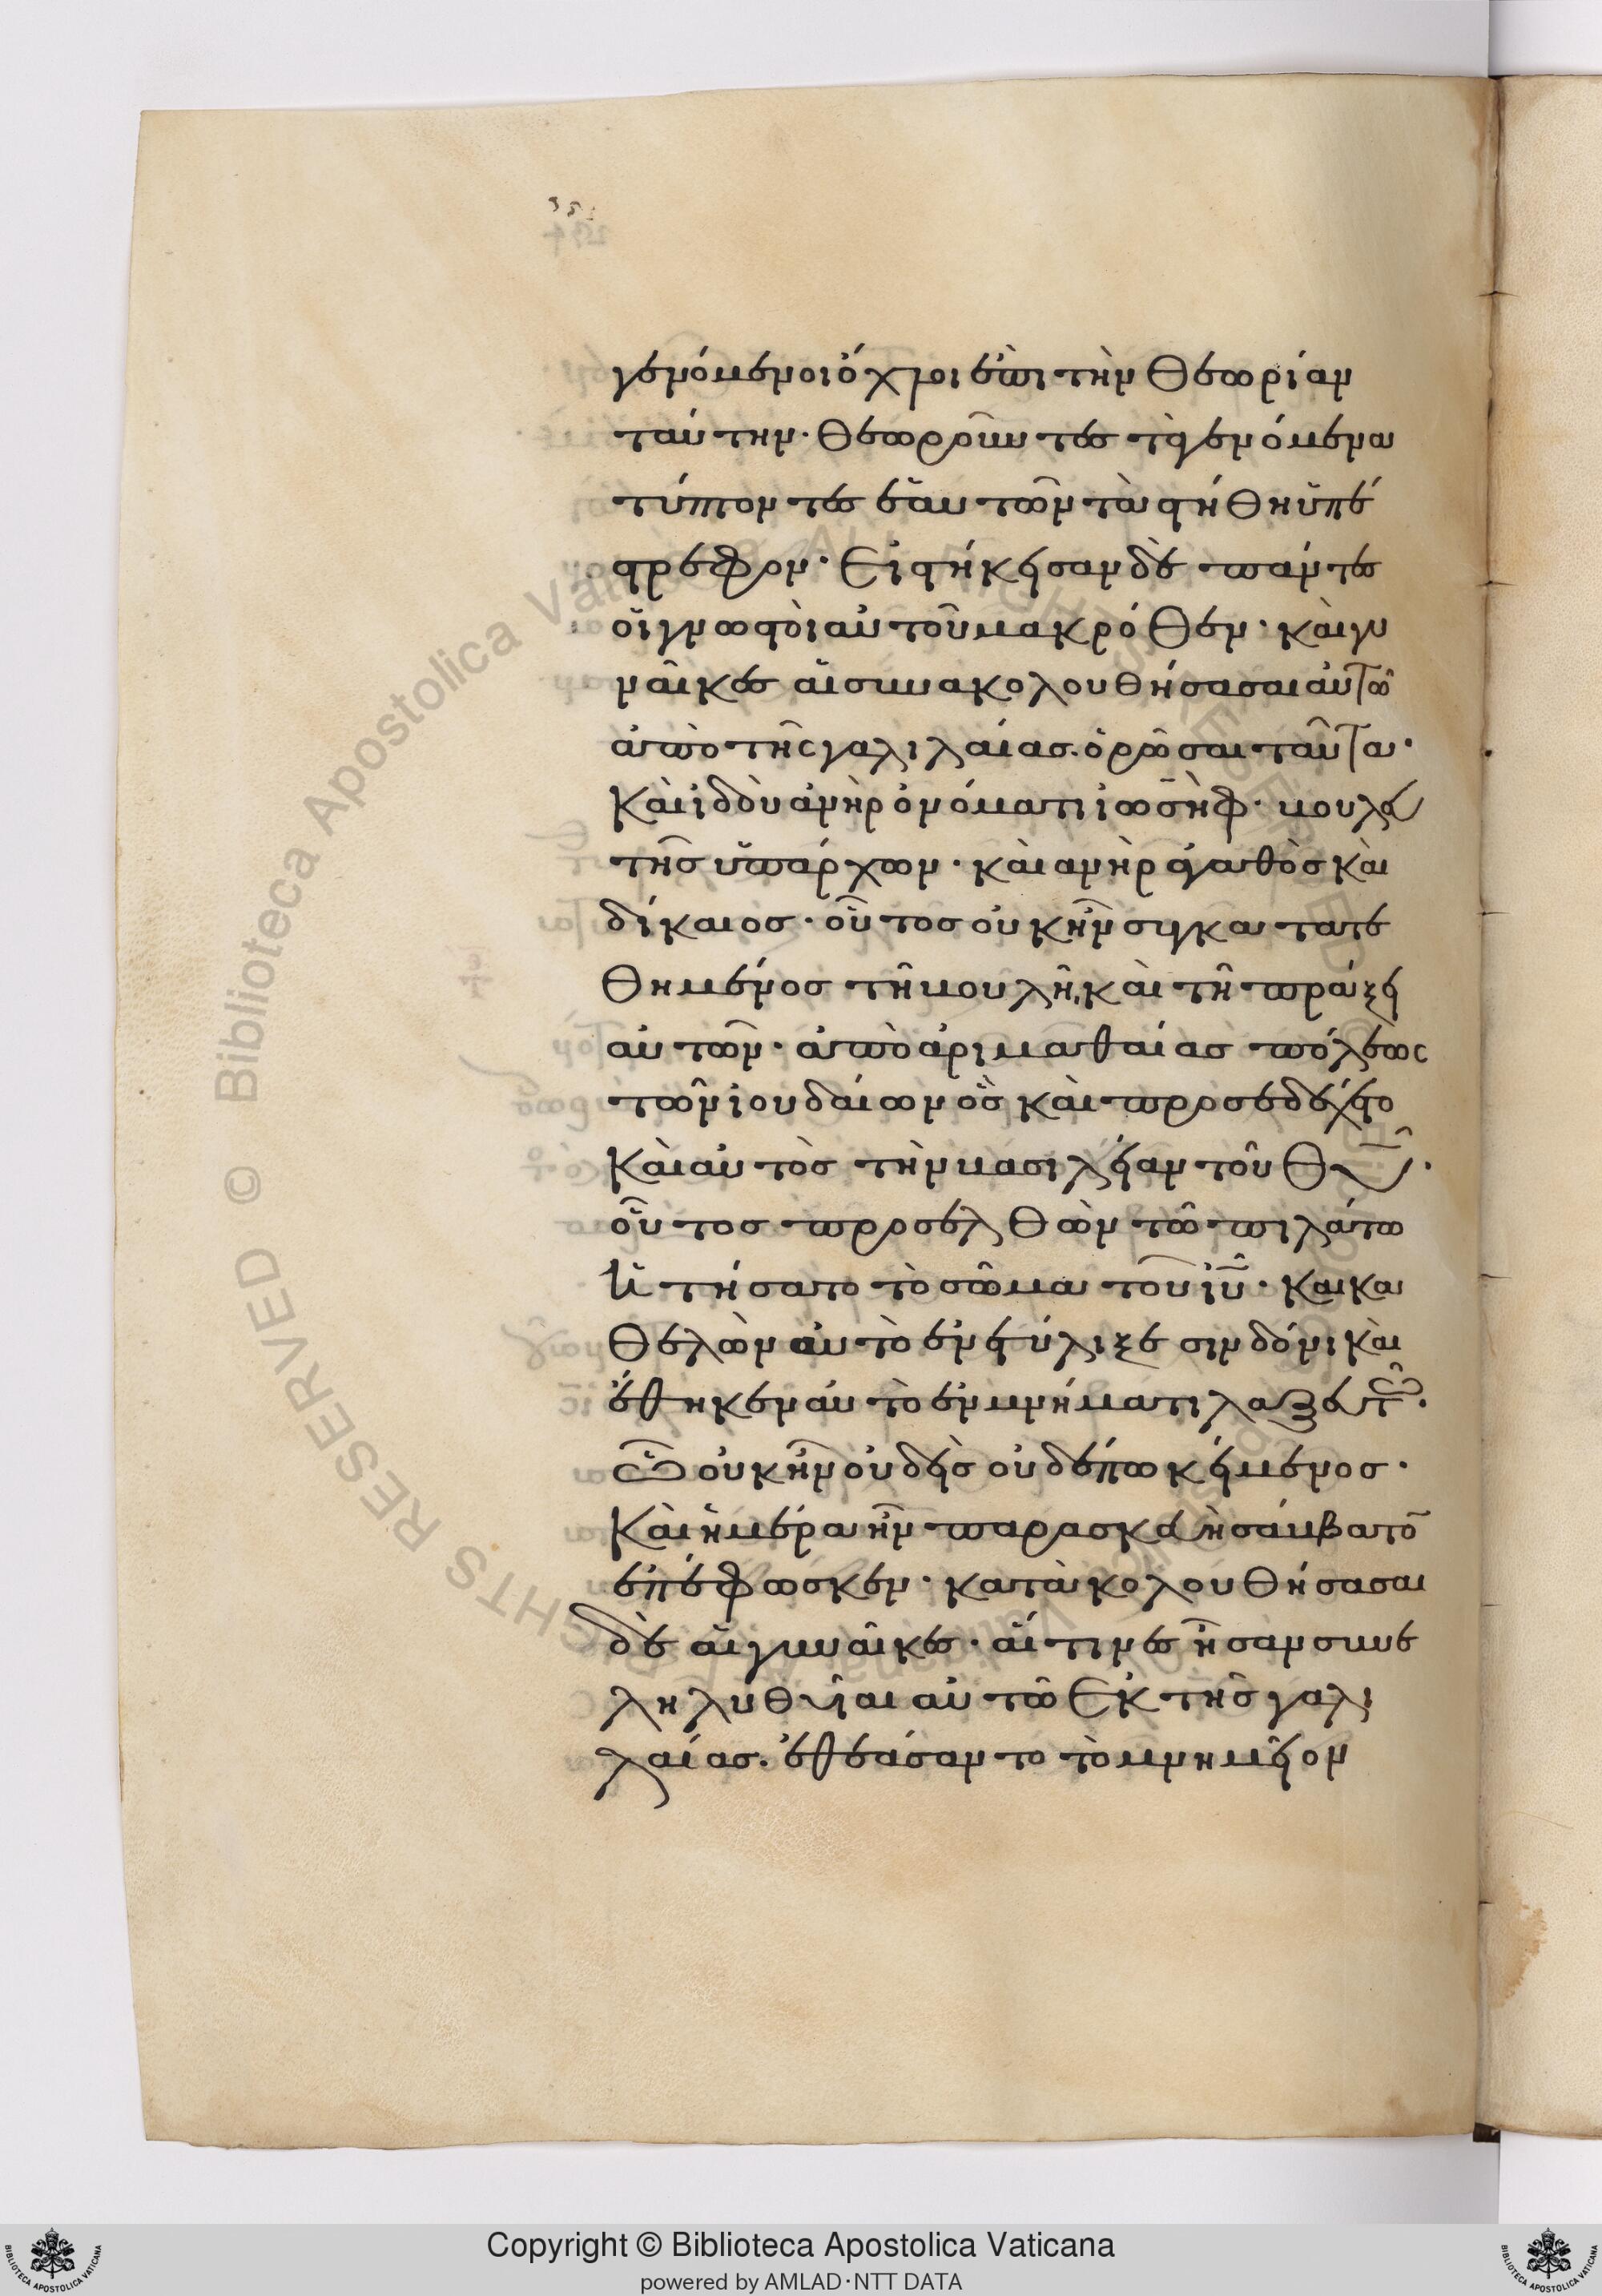 γενόμενοι ὄχλοι ἐπὶ τὴν θεωρίαν
ταύτην· θεωροῦντες τὰ γενόμενα
τύπτοντες ἑαυτῶν τὰ στήθη ὑπέ
στρεφον· Εἱστήκεισαν δὲ πάντες
οἱ γνωστοὶ αὐτοῦ μακρόθεν· καὶ γυ
ναῖκες αἱ συνακολουθήσασαι αὐτῶ
ἀπὸ τῆς γαλιλαίας. ὁρῶσαι ταῦτα·
Καὶ ἰδοὺ ἀνὴρ ὀνόματι ἰωσὴφ· βουλευ
τὴς ὑπάρχων· καὶ ανὴρ ἀγαθὸς καὶ
δίκαιος· οὗτος οὐκ ἦν συγκατατε
θημένος τῆ βουλῆ, καὶ τῆ πράξει
αὐτῶν· ἀπὸ ἀριμαθαίας πόλεως
τῶν ἰουδαίων ὃς καὶ προσεδέχετο
Καὶ αὐτὸς τὴν βασιλείαν τοῦ θ̅υ̅·
οὗτος προσελθὼν τῶ πιλάτω
ἠτήσατο τὸ σῶμα τοῦ ἰ̅υ̅· και κα
θελὼν αὐτὸ ἐνετύλιξε σινδόνι καὶ
ἔθηκεν αὐτὸ ἐν μνήματι λαξευτῶ·
ὧ οὐκ ἦν οὐδεὶς οὐδέπω κείμενος·
Καὶ ἡμέρα ἦν παρασκευὴ σάββατον
ἐπέφωσκεν· κατακολουθήσασαι
δὲ αἱ γυναῖκες· αἵτινες ἦσαν συνε
ληλυθυῖαι αὐτῶ Ἐκ τῆς γαλι
λαίας. ἐθεάσαντο τὸ μνημεῖον
Biblioteca Apostolica Vaticana
© Biblioteca Apostolica Vaticana ALL RIGHTS RESERVED
Copyright © Biblioteca Apostolica Vaticana
powered by AMLAD·NTT DATA